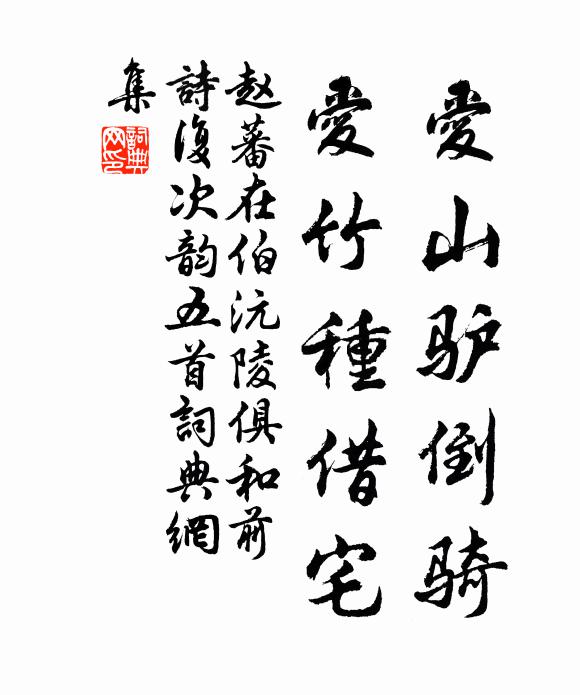 愛山驴倒骑
愛竹種借宅
赵蕃在伯沅陵俱和前
詩復次韵五首詞典網
集
詞典网印